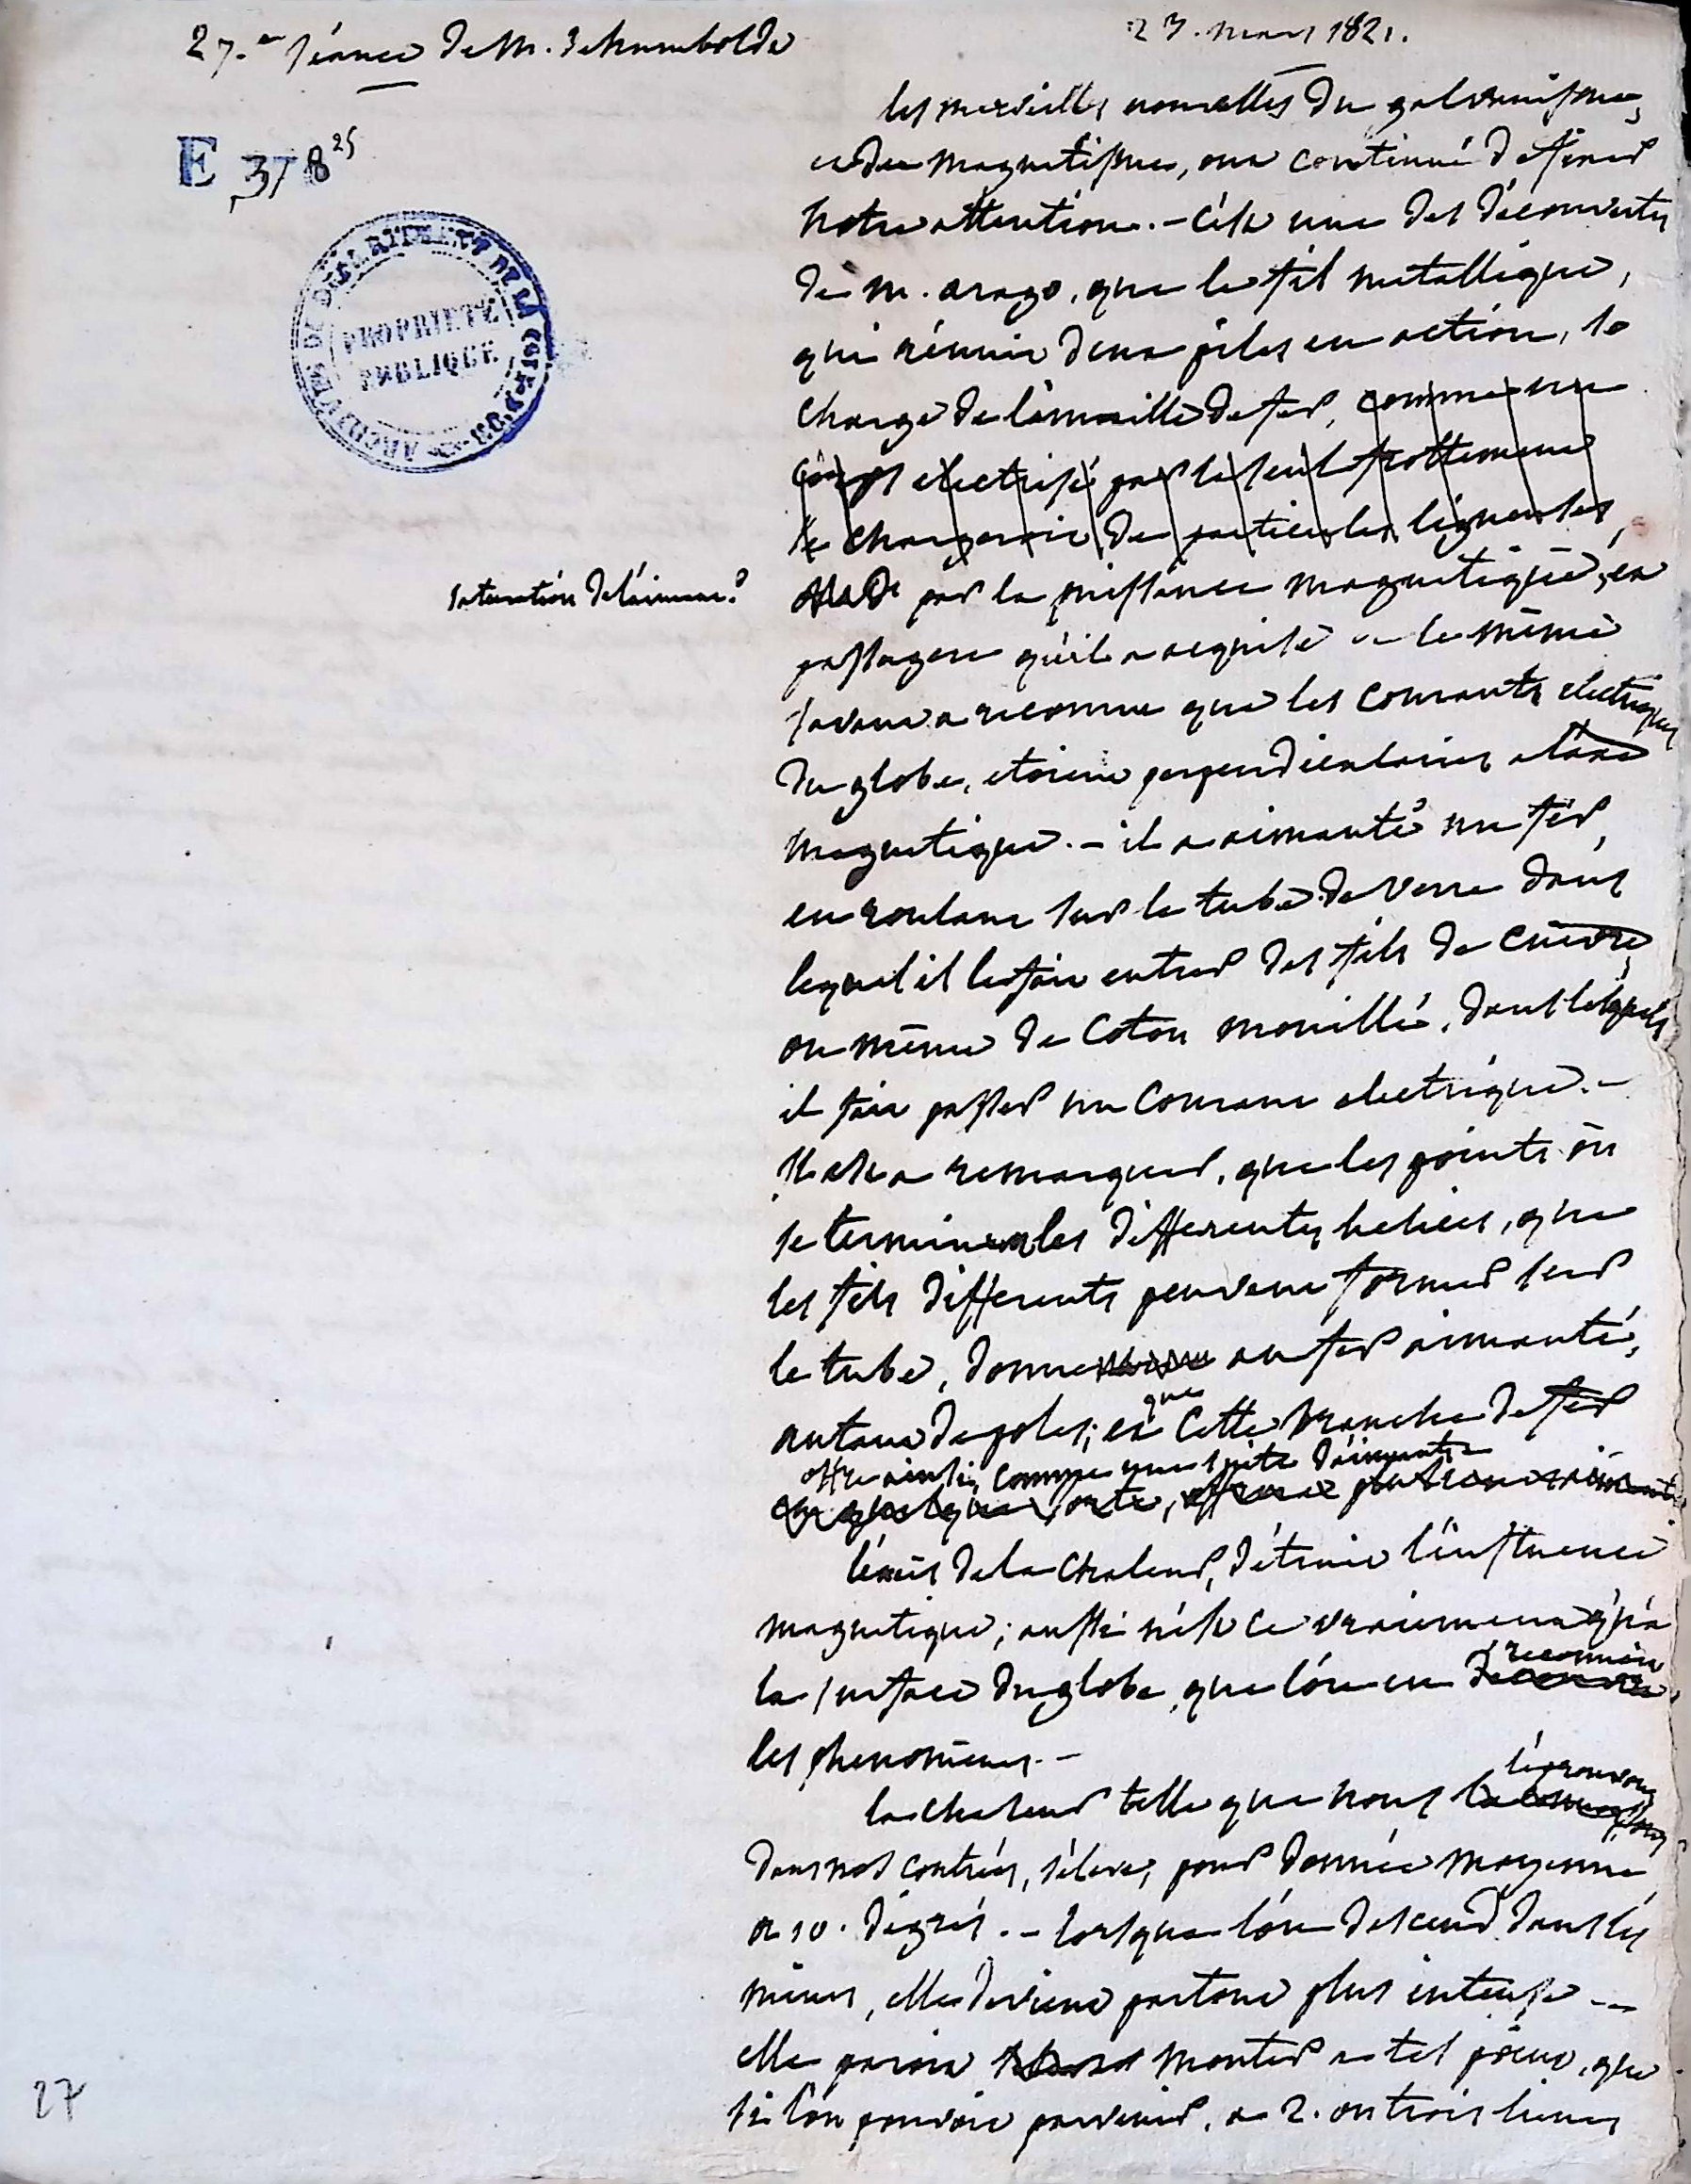 27.e séance de M. de humboldt
23. mars 1821.
E 378 25
ARCHIVES DU DÉPARTEMENT DE LA
PROPRIÉTÉ
PUBLIQUE
les merveilles nouvelles du galvanisme,
et du magnetisme, ont continué d'fixer
notre attention. - c'est une des découvertes
de m. arago, que le fil metallique,
qui réunit deux piles en action, se
charge de limaille de fer, comme un
corps electrisé par le seul frottement
se chargeroit de particules ligneuses,
par la puissance magnetique, et
passagere qu'il a acquise - le même
savant a reconnu que les courants electriques
du globe, etoient perpendiculaires a l'axe
magnetique. - il a aimanté un fer,
en roulant sur le tube de verre dans
lequel il le fait entrer des fils de cuivre,
ou même de coton mouillé, dans lesquels
il fait passer un courant electrique. -
Il est a remarquer, que les points où
se terminent les differentes helices, que
les fils differents peuvent former sur
le tube, donnent au fer aimanté,
autant de poles; et que cette branche de fer
offre ainsi, comme une suite d'aimants
en quelque sorte,
saturation de l'aimant?
l'excès de la chaleur, détruit l'influence
magnetique; aussi n'est ce vraiment qu'a
la surface du globe, que l'on en reconnoit
les phenomenes. -
la chaleur telle que nous l'éprouvons
dans nos contrées, s'éleve, pour donnée moyenne
a 10. dégrés. - lorsque l'on descend dans les
mines, elle devient partout plus intense -
elle paroit monter a tel point, que
si l'on pouvoit parvenir, a 2. ou trois lieues
27